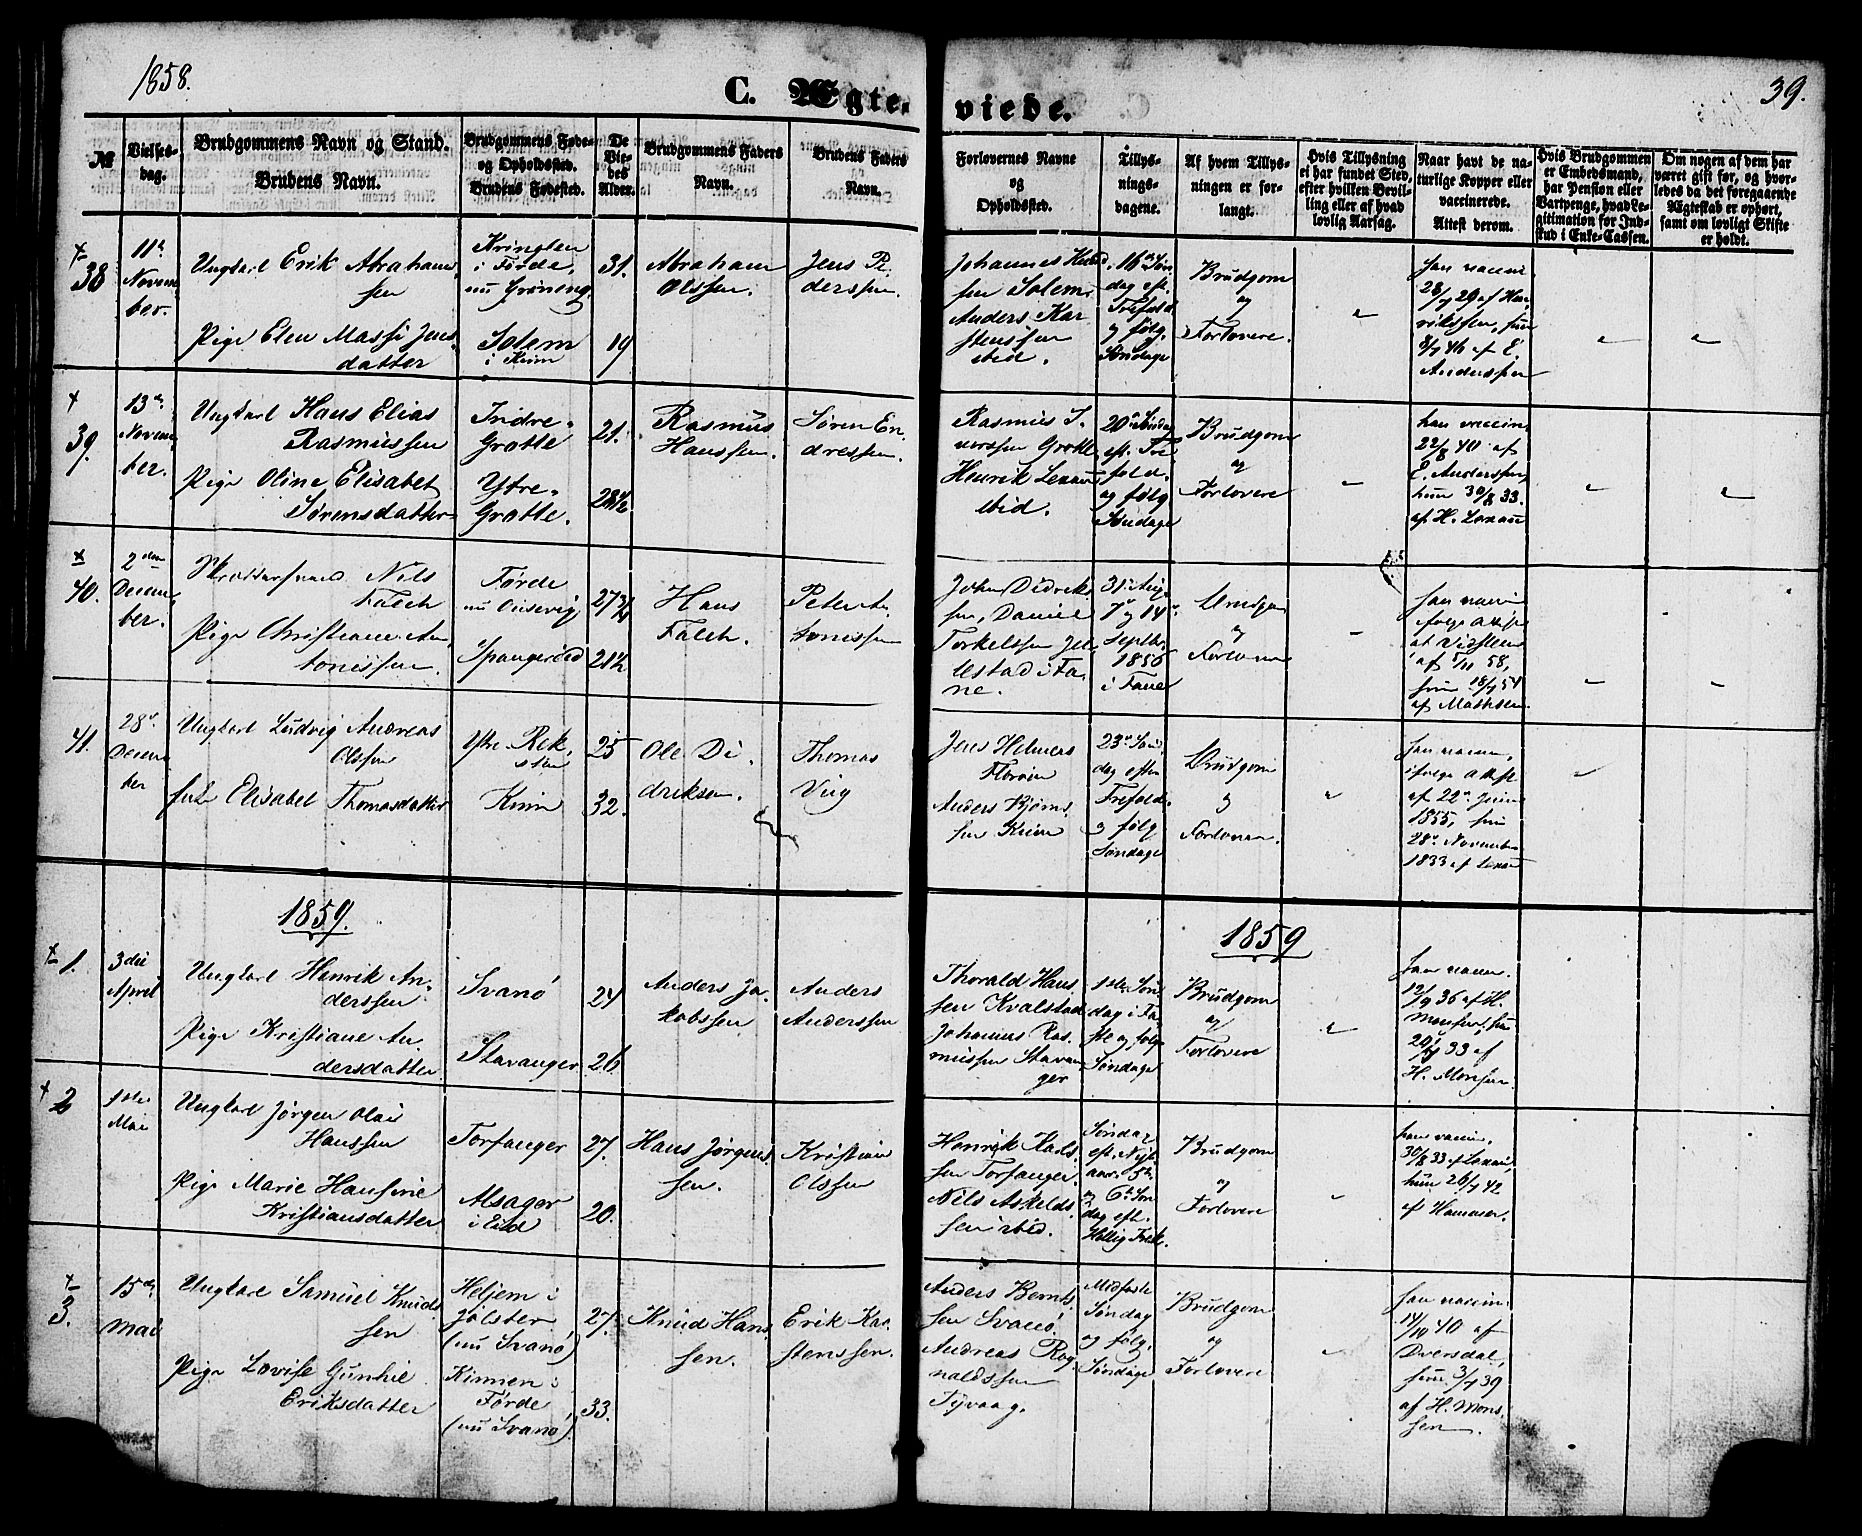 1858.
C. Ægte-
viede.
39.
№
Vielses-
dag.
Brudgommens Navn og Stand.
Brudens Navn.
Brudgommens Føde-
og Opholdssted.
Brudens Fødested.
De
Vie-
des
Alder.
Brudgommens Faders
Navn.
Brudens Faders
Navn.
Forlovernes Navne
og
Opholdssted.
Tillys-
nings-
dagene.
Af hvem Tillys-
ningen er for-
langt.
Hvis Tillysning
ei har fundet Sted,
efter hvilken Bevil-
ling eller af hvad
lovlig Aarsag.
Naar havt de na-
turlige Kopper eller
vaccinerede.
Attest derom.
Hvis Brudgommen
er Embedsmand,
har Pension eller
Vartpenge, hvad Le-
gitimation for Ind-
skud i Enke-Cassen.
Om nogen af dem har
været gift før, og hvor-
ledes da det foregaaende
Ægteskab er ophørt,
samt om lovligt Skifte
er holdt.
38
11te
Novem
ber.
Ungkarl Erik Abraham
sen
Pige Elen Massi Jens
datter
i Førde,
nu Grøneng
Solem
i Kinn
31.
19
Abraham
Olssen.
Jens Pe
derssen.
Johannes
sen Solem
Anders Kar
stenssen
ibid.
16de Søn
dag eft.
Trefold.
og følg.
Søndage
Brudgom
og
Forlovere.
han vaccin
28/7 29 af Hen
rikssen, hun
8/7 46 af E.
Anderssen
39.
13de
Novem
ber.
Ungkarl Hans Elias
Rasmussen
Pige Oline Elisabet
Sørensdatter
Indre-
Grotle
Ytre-
Grotle.
21.
28 1/2
Rasmus
Hanssen.
Søren En
dressen.
Rasmus I
verssen Grotle
Henrik
ibid.
20de Søndag
eft. Tre
fold.
og følg
Søndage
Brudgom
og
Forlovere
han vaccin.
22/8 40 af
E. Anderssen,
hun 30/8 33.
af H.
40.
2den
Decem
ber.
Nils
Falch
Pige Christiane An
tonissen.
Førde
nu
27 3/4
21 1/2
Hans
Falch.
Peter An
tonissen
John Didrik
sen, Daniel
Torkelssen Jel
lestad i Fa
ne.
31te Aug
7de og 14de
Septbr.
1856
i Fane
Brudgom
og
Forlovere
han vaccin
ifølge Attst
af 5/11 58,
hun 18/7 54
af Mathesen.
41.
28de
Decem
ber
Ungkarl Ludvig Andreas
Olssen
Elisabet Thomasdatter
Ytre Rek
sten
Kinn
25
32.
Ole Di
driksen.
Thomas
Jens Helmers
Florøen
Anders Bjørns
sen Kinn
23de Søn
dag efter
Trefold.
og følg
Søndage
Brudgom
og
Forlovere.
han vaccin.
ifølge Attst
af 22de Juni
1855, hun
28de November
1833 af
1859.
1859
1.
3die
April
Ungkarl Henrik An
derssen
Pige Kristiane An
dersdatter
Svanø
Stavanger
24
26
Anders Ja
kobssen
Anders
Anderssen
Thorald Hans
sen Kvalstad
Johannes Ras
mussen Stavan
ger
1ste Søn
dag i Fa
ste og følg
Søndage
Brudgom
og
Forlovere
han vaccin.
12/9 36 af H.
Monsen, hun
33 af
H. Monsen.
2
1ste
Mai
Ungkarl Jørgen Olai
Hanssen
Pige Marie Hansine
Kristiansdatter
Torfanger
Alsager
i Eid
27.
20.
Hans Jørgens
sen.
Kristian
Olssen
Henrik Karls
sen Torfanger.
Nils Askelds
sen ibid.
Søndag
eft. Nyt
aar. 5te
og 6te Søn
dag eft.
Hellig Trek.
Brudgom
og
Forlovere
han vaccin.
30/8 33 af
hun 26/7 42
af Hammer.
3.
15de
Mai
Ungkarl Samuel Knuds
sen
Pige Lovise Gunhil
Eriksdatter
Heljem i
Jølster
(nu Svanø)
Kinnen i
Førde
(nu Svanø).
27.
33.
Knud Hans
sen.
Erik Kar
stenssen.
Anders Bernts
sen Svanø.
Andreas Rag
naldssen
Tyvaag.
Midfaste
Søndag
og følg.
Søndage
Brudgom
og
Forlovere
han vaccin.
14/10 40 af
Dversdal,
hun 3/7 39
af H. Mons
sen.